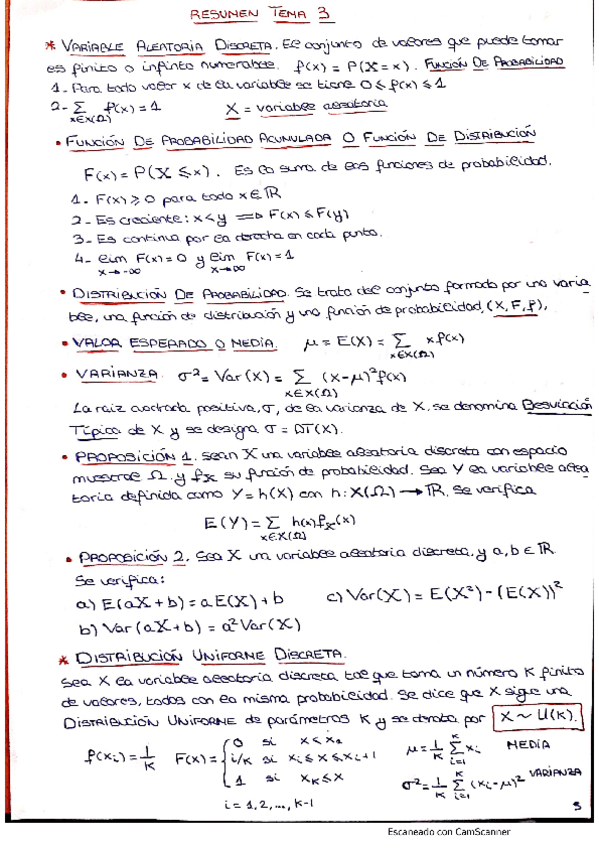 RESUMEN TEMA 3
* VARIABLE ALEATORIA DISCRETA. El conjunto de valores que puede tomar
es finito o infinito numerable. f(x) = P(X = x). FUNCIÓN DE PROBABILIDAD
1- Para todo valor x de la variable se tiene 0 ≤ f(x) ≤ 1
2- Σ x∈X(Ω) f(x) = 1 X = variable aleatoria
• FUNCIÓN DE PROBABILIDAD ACUMULADA O FUNCIÓN DE DISTRIBUCIÓN
F(x) = P(X ≤ x). Es la suma de las funciones de probabilidad.
1- F(x) ≥ 0 para todo x ∈ ℝ
2- Es creciente: x < y ⟹ F(x) ≤ F(y)
3- Es continua por la derecha en cada punto.
4- lim x→-∞ F(x) = 0 y lim x→∞ F(x) = 1
• DISTRIBUCIÓN DE PROBABILIDAD. Se trata del conjunto formado por una varia
ble, una función de distribución y una función de probabilidad, (X, F, f),
• VALOR ESPERADO O MEDIA. μ = E(X) = Σ x∈X(Ω) x f(x)
• VARIANZA. σ² = Var(X) = Σ x∈X(Ω) (x-μ)² f(x)
La raíz cuadrada positiva, σ, de la varianza de X, se denomina Desviación
Típica de X y se designa σ = DT(X).
• PROPOSICIÓN 1. Sean X una variable aleatoria discreta con espacio
muestral Ω y fx su función de probabilidad. Sea Y la variable alea
toria definida como Y = h(X) con h: X(Ω) → ℝ. Se verifica
E(Y) = Σ x∈X(Ω) h(x) fx(x)
• PROPOSICIÓN 2. Sea X una variable aleatoria discreta, y a, b ∈ ℝ.
Se verifica:
a) E(aX + b) = a E(X) + b c) Var(X) = E(X²) - (E(X))²
b) Var(aX + b) = a² Var(X)
* DISTRIBUCIÓN UNIFORME DISCRETA.
Sea X la variable aleatoria discreta tal que toma un número K finito
de valores, todos con la misma probabilidad. Se dice que X sigue una
DISTRIBUCIÓN UNIFORME de parámetros K y se denota por X ~ U(K).
f(xi) = 1/K F(x) = { 0 si x < x₁ μ = 1/K Σ i=1 K xi MEDIA
i/K si xi ≤ x ≤ xi+1
1 si xK ≤ x σ² = 1/K Σ i=1 K (xi - μ)² VARIANZA
i = 1, 2, ..., K-1
Escaneado con CamScanner